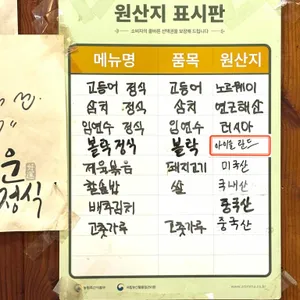 원산지 표시판
소비자의 올바른 선택권을 보장해 드립니다
메뉴명 품목 원산지
고등어 정식 고등어 노르웨이
삼치 정식 삼치
임연수 정식 임연수 러시아
볼락 정식 볼락 아이슬란드
제육볶음 돼지고기 미국산
쌀 국내산
배추김치 중국산
고춧가루 고춧가루 중국산
운
정식